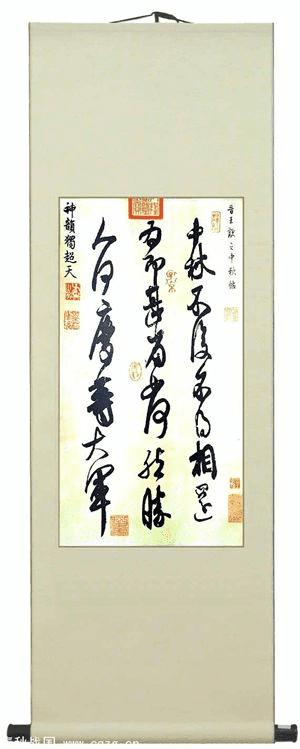 晉王獻之中秋帖
中秋不復不得相還
為即甚省如何然勝
人何慶等大軍
神韻獨超天
秋战国 www.cqzg.cn